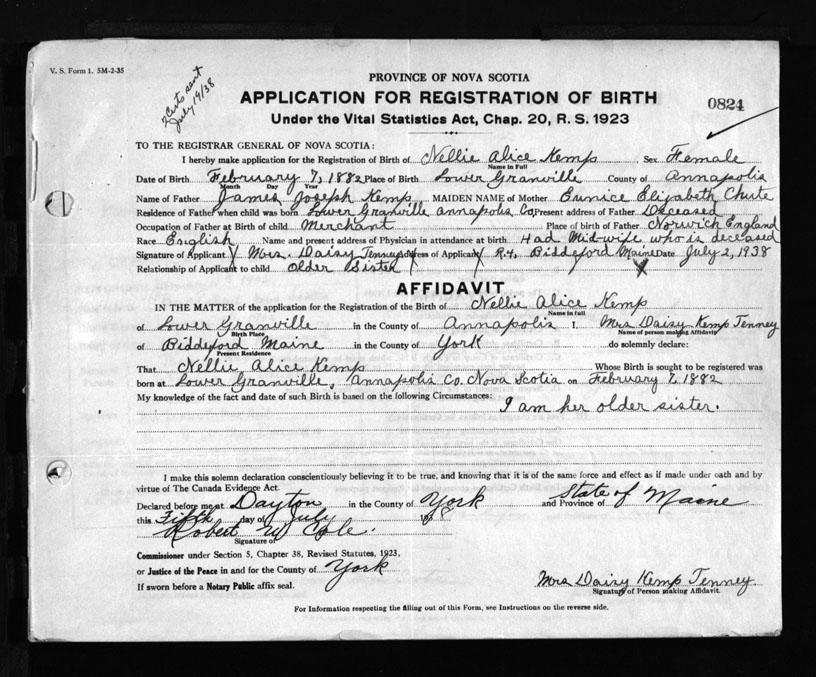 V. S. Form 1. 5M-2-35
2 Certs sent
July 19/38
PROVINCE OF NOVA SCOTIA
APPLICATION FOR REGISTRATION OF BIRTH
0824
Under the Vital Statistics Act, Chap. 20, R. S. 1923
TO THE REGISTRAR GENERAL OF NOVA SCOTIA:
I hereby make application for the Registration of Birth of Nellie Alice Kemp Sex Female
Name in Full
Date of Birth February 7, 1882 Place of Birth Lower Granville County of Annapolis
Month Day Year
Name of Father James Joseph Kemp MAIDEN NAME of Mother Eunice Elizabeth Chute
Residence of Father when child was born Lower Granville Annapolis Co Present address of Father Deceased
Occupation of Father at Birth of child Merchant Place of birth of Father Norwich England
Race English Name and present address of Physician in attendance at birth Had Mid-wife who is deceased
Signature of Applicant Mrs. Daisy Tenney Address of Applicant R.4, Biddeford Maine Date July 2, 1938
Relationship of Applicant to child older Sister
AFFIDAVIT
IN THE MATTER of the application for the Registration of the Birth of Nellie Alice Kemp
Name in full
of Lower Granville in the County of Annapolis I, Mrs Daisy Kemp Tenney
Birth Place Name of person making Affidavit
of Biddeford Maine in the County of York do solemnly declare:
Present Residence
That Nellie Alice Kemp Whose Birth is sought to be registered was
born at Lower Granville, Annapolis Co. Nova Scotia on February 7, 1882
My knowledge of the fact and date of such Birth is based on the following Circumstances:
I am her older sister.
I make this solemn declaration conscientiously believing it to be true, and knowing that it is of the same force and effect as if made under oath and by
virtue of The Canada Evidence Act.
Declared before me at Dayton in the County of York and Province of State of Maine
this Fifth day of July 19
Robert W Cole.
Signature of
Commissioner under Section 5, Chapter 38, Revised Statutes, 1923,
or Justice of the Peace in and for the County of York
If sworn before a Notary Public affix seal.
Mrs Daisy Kemp Tenney
Signature of Person making Affidavit.
For Information respecting the filling out of this Form, see Instructions on the reverse side.